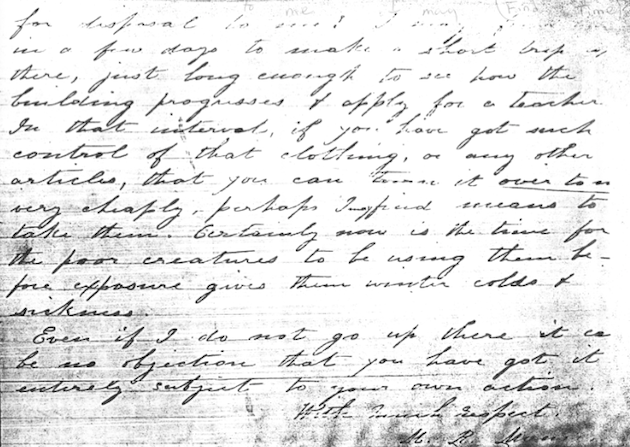 to me I may (Find time)
for disposal to me? I may
in a few days to make a short trip up
there, just long enough to see how the
building progresses & apply for a teacher.
In that interval, if you have got such
control of that clothing, or any other
articles, that you can turn it over to m
very cheaply, perhaps I may find means to
take them. Certainly now is the time for
the poor creatures to be using them be-
fore exposure gives them winter colds &
sickness.
Even if I do not go up there it ca
be no objection that you have got it
entirely subject to your own action.
With much respect.
M. R.